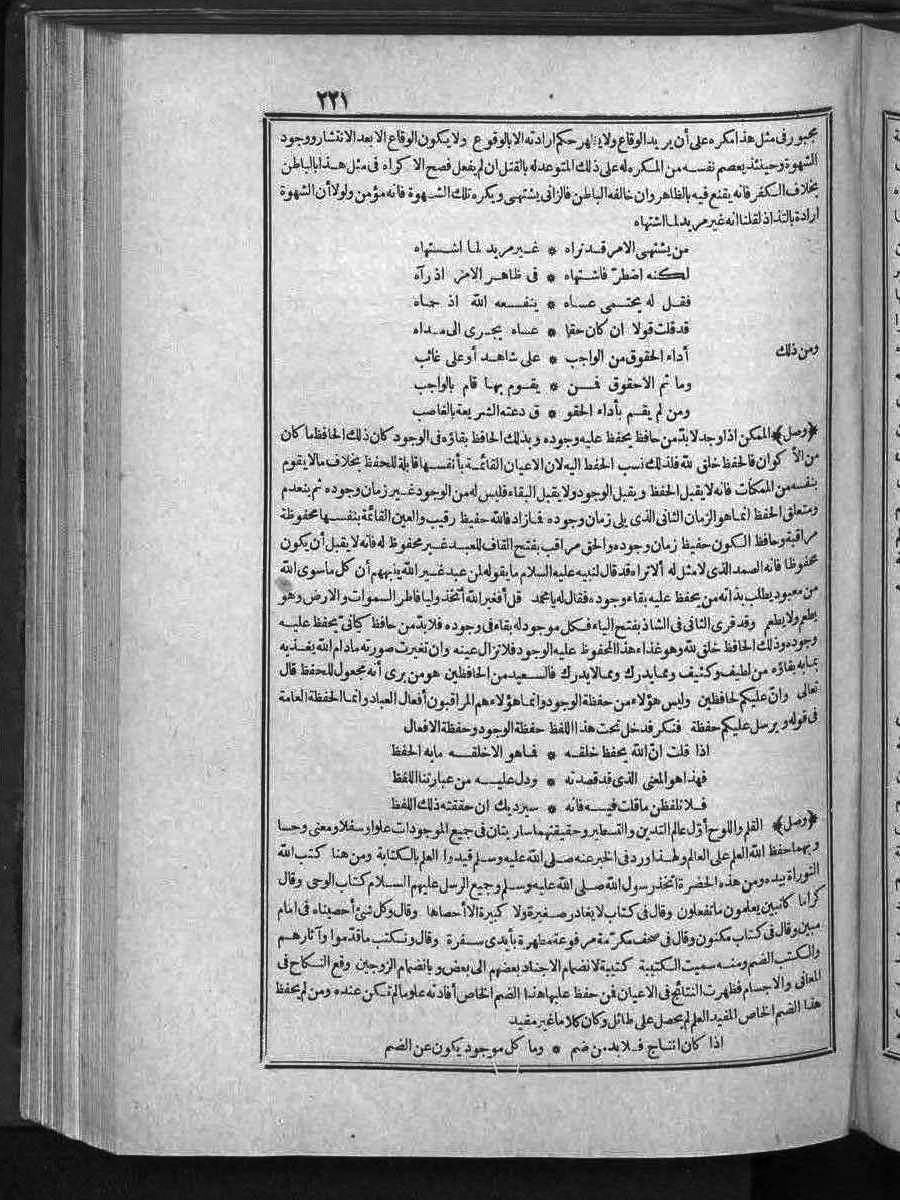 ٢٢١
مجبور فى مثل هذا مكره على أن يريد الوقاع ولا يظهر حكم ارادته الا بالوقوع ولا يكون الوقاع الا بعد الانتشار ووجود
الشهوة وحينئذ يعصم نفسه من المكره له على ذلك المتوعد له بالقتل ان لم يفعل فصح الاكراه فى مثل هذا بالباطن
بخلاف الكفر فانه يقنع فيه بالظاهر وان خالفه الباطن فالزانى يشتهى ويكره تلك الشهوة فانه مؤمن ولولا أن الشهوة
ارادة بالتذاذ لقلنا انه غير مريد لما اشتهاه
من يشتهى الامر قد تراه * غير مريد لما اشتهاه
لكنه اضطرّ فاشتهاه * فى ظاهر الامر اذ رآه
فقل له يحتمى عساه * ينفعه الله اذ حماه
قد قلت قولا ان كان حقا * عساه يجرى الى مداه
ومن ذلك
أداء الحقوق من الواجب * على شاهد أو على غائب
وما ثم الا حقوق فمن * يقوم بها قام بالواجب
ومن لم يقم بأداء الحقو * ق دعته الشريعة بالغاصب
﴿وصل﴾ الممكن اذا وجد لا بدّ من حافظ يحفظ عليه وجوده وبذلك الحافظ بقاؤه فى الوجود كان ذلك الحافظ ما كان
من الأكوان فالحفظ خلق لله فلذلك نسب الحفظ اليه لان الاعيان القائمة بأنفسها قابلة للحفظ بخلاف مالا يقوم
بنفسه من الممكنات فانه لا يقبل الحفظ ويقبل الوجود ولا يقبل البقاء فليس له من الوجود غير زمان وجوده ثم ينعدم
ومتعلق الحفظ انما هو الزمان الثانى الذى يلى زمان وجوده فما زاد فالله حفيظ رقيب والعين القائمة بنفسها محفوظة
مراقبة وحافظ الكون حفيظ زمان وجوده والحق مراقب بفتح القاف للعبد غير محفوظ له فانه لا يقبل أن يكون
محفوظا فانه الصمد الذى لا مثل له ألا تراه قد قال لنبيه عليه السلام ما يقوله لمن عبد غير الله ينبههم أن كل ما سوى الله
من معبود يطلب بذاته من يحفظ عليه بقاء وجوده فقال له يا محمد قل أفغير الله أتخذ وليا فاطر السموات والارض وهو
يطعم ولا يطعم وقد قرئ الثانى فى الشاذ بفتح الياء فكل موجود له بقاء فى وجوده فلا بدّ من حافظ كيانىّ يحفظ عليه
وجوده وذلك الحافظ خلق لله وهو غذاء هذا المحفوظ عليه الوجود فلا تزال عينه وان تغيرت صورته مادام الله يغذيه
بما به بقاؤه من لطيف وكثيف ومما يدرك ومما لا يدرك فالسعيد من الحافظين هو من يرى أنه مجعول للحفظ قال
تعالى وانّ عليكم لحافظين وليس هؤلاء من حفظة الوجود وانما هؤلاء هم المراقبون أفعال العباد وانما الحفظة العامة
فى قوله ويرسل عليكم حفظة فنكر فدخل تحت هذا اللفظ حفظة الوجود وحفظة الافعال
اذا قلت انّ الله يحفظ خلقه * فما هو الا خلقه ما به الحفظ
فهذا هو المعنى الذى قد قصدته * ودل عليه من عبارتنا اللفظ
فلا تلفظن ما قلت فيه فانه * سيرديك ان حققته ذلك اللفظ
﴿وصل﴾ القلم واللوح أوّل عالم التدوين والتسطير وحقيقتهما ساريتان فى جميع الموجودات علوا وسفلا ومعنى وحسا
وبهما حفظ الله العلم على العالم ولهذا ورد فى الخبر عنه صلى الله عليه وسلم قيدوا العلم بالكتابة ومن هنا كتب الله
التوراة بيده ومن هذه الحضرة اتخذ رسول الله صلى الله عليه وسلم وجميع الرسل عليهم السلام كتاب الوحى وقال
كراما كاتبين يعلمون ما تفعلون وقال فى كتاب لا يغادر صغيرة ولا كبيرة الا أحصاها وقال وكل شئ أحصيناه فى امام
مبين وقال فى كتاب مكنون وقال فى صحف مكرّمة مرفوعة مطهرة بأيدى سفرة وقال ونكتب ما قدّموا وآثارهم
والكتب الضم ومنه سميت الكتيبة كتيبة لانضمام الاجناد بعضهم الى بعض وبانضمام الزوجين وقع النكاح فى
المعانى والاجسام فظهرت النتائج فى الاعيان فمن حفظ عليها هذا الضم الخاص أفادته علوما لم تكن عنده ومن لم يحفظ
هذا الضم الخاص المفيد العلم لم يحصل على طائل وكان كلاما غير مفيد
اذا كان انتاج فلا بد من ضم * وما كل موجود يكون عن الضم